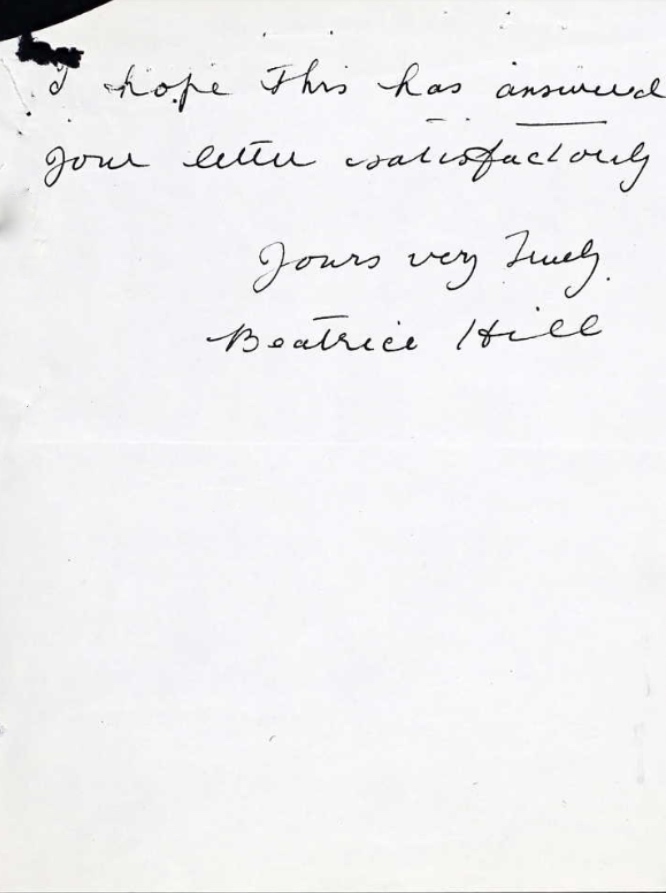 I hope This has answered
your letter satisfactorily
Yours very Truly.
Beatrice Hill